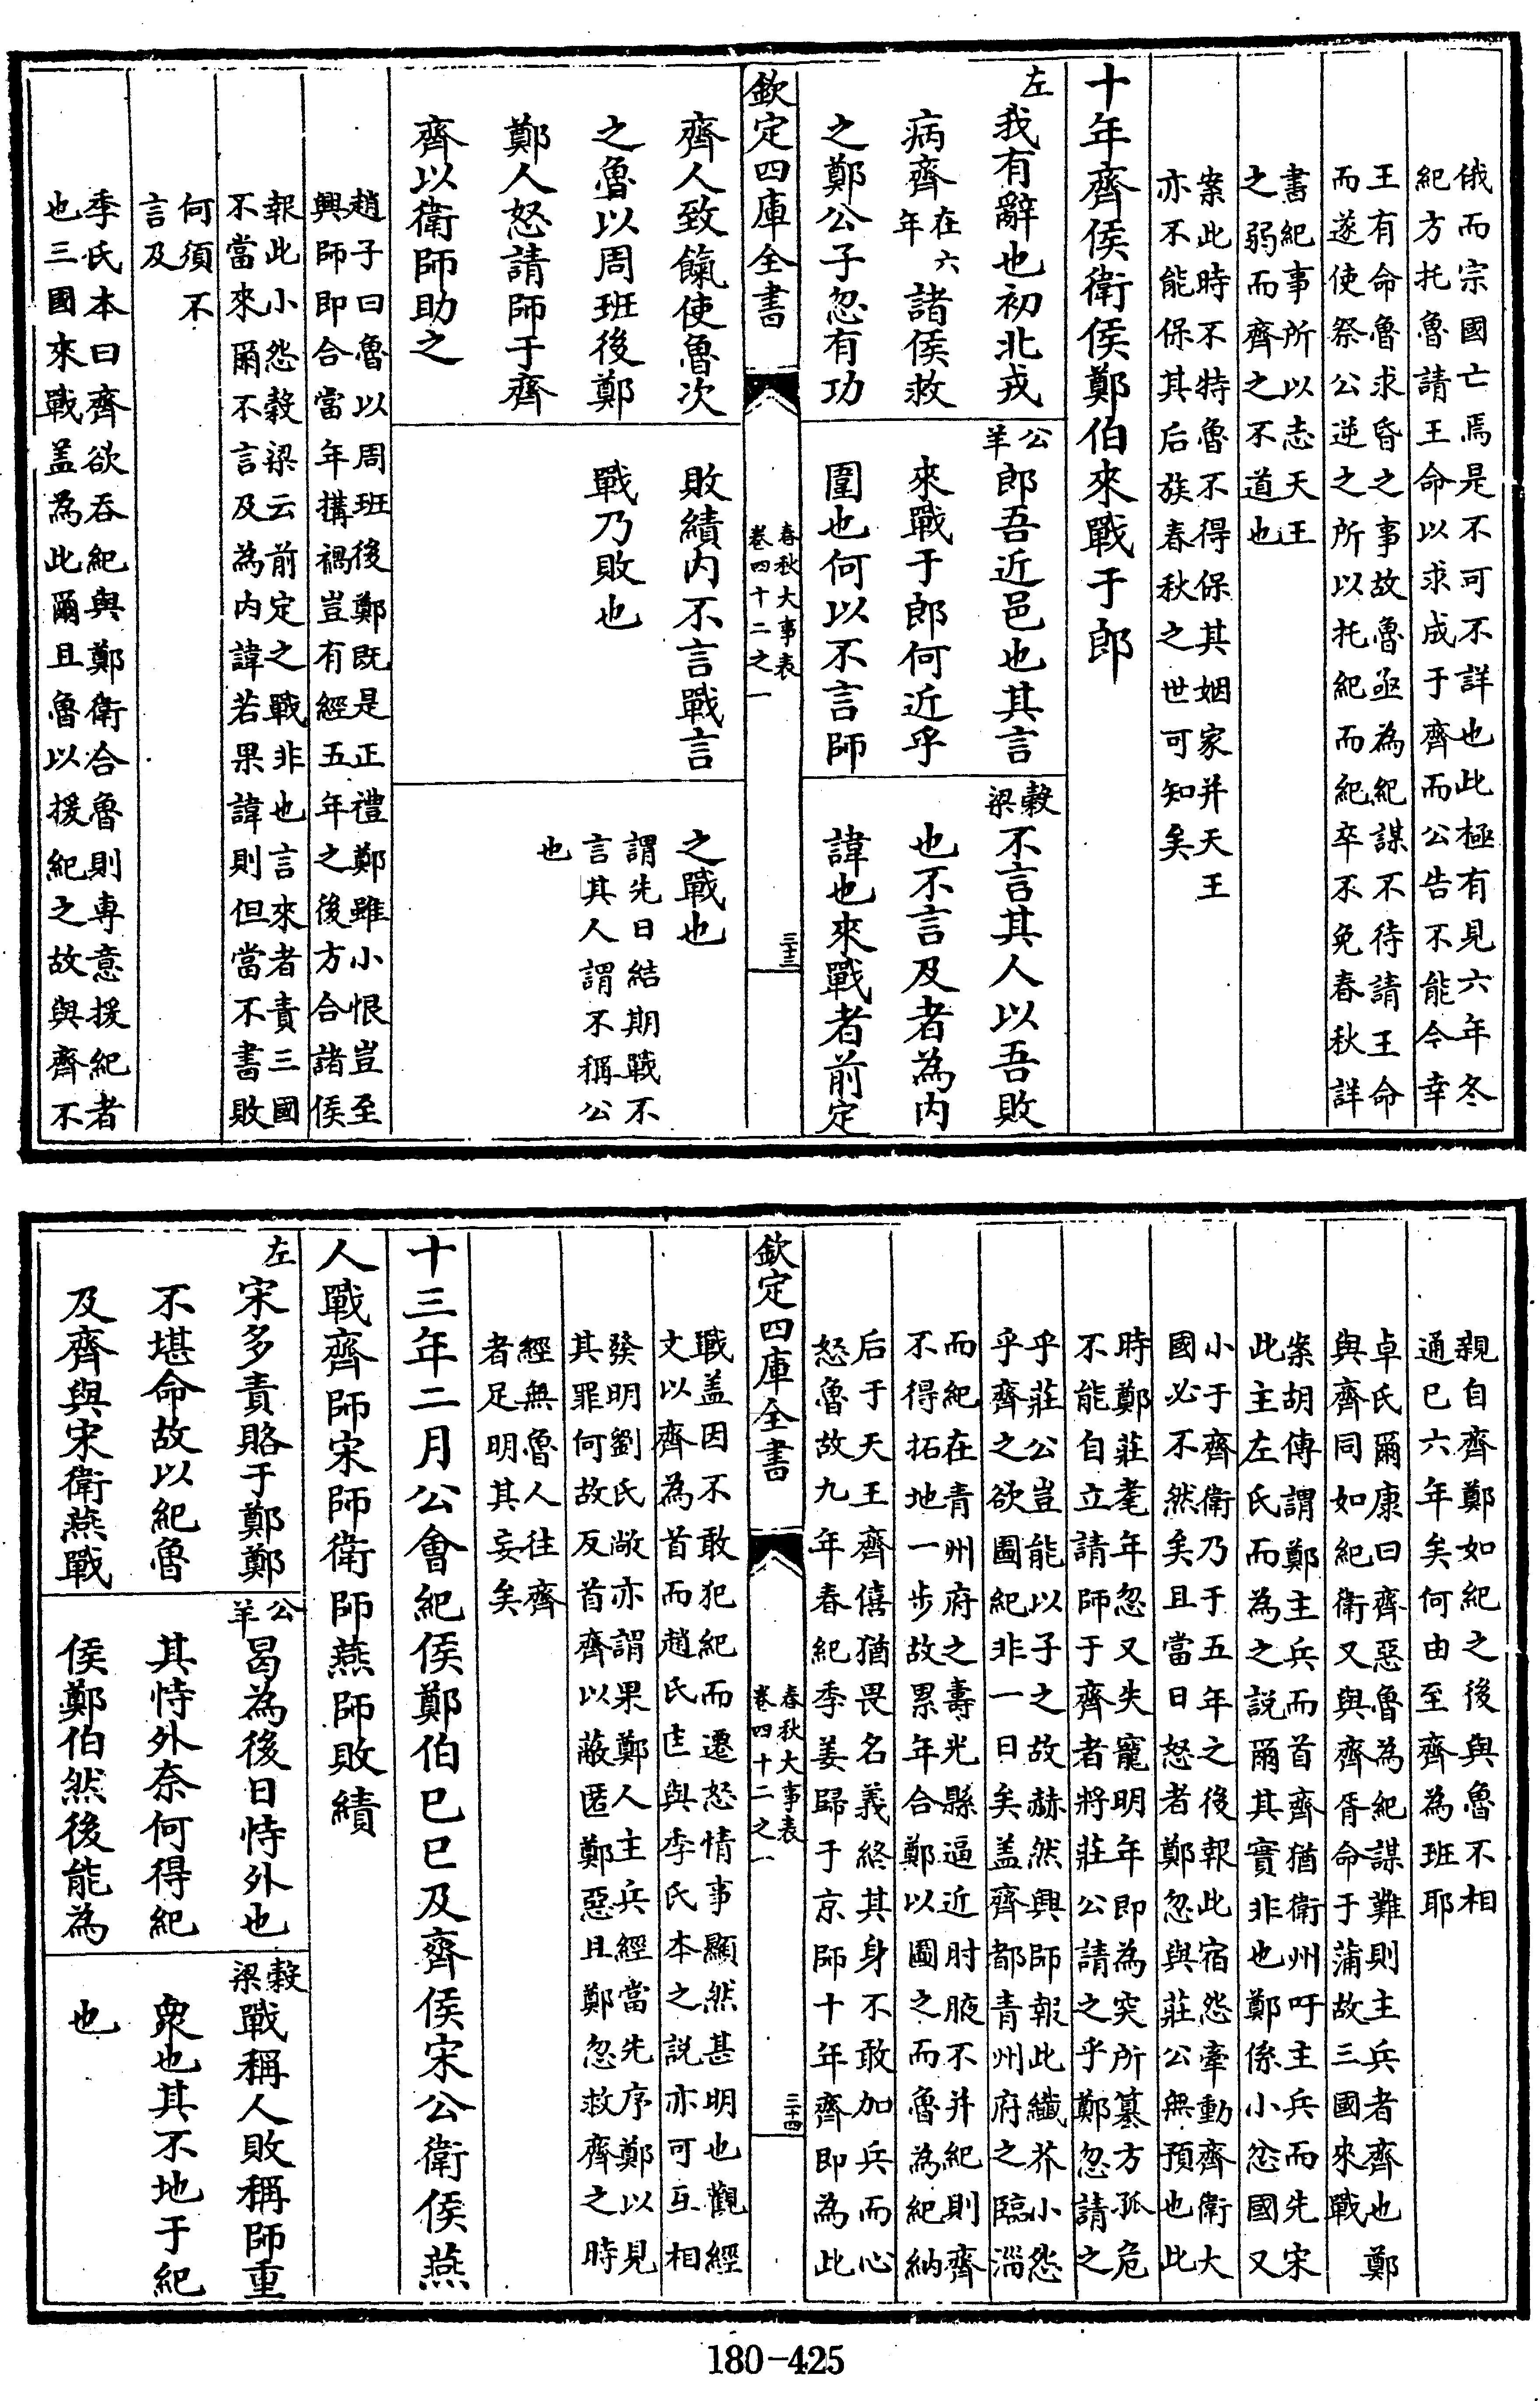 俄而宗國亡焉是不可不詳也此極有見六年冬
紀方托魯請王命以求成于齊而公告不能今幸
王有命魯求昏之事故魯亟為紀謀不待請王命
而遂使祭公逆之所以托紀而紀卒不免春秋詳
書紀事所以志天王
之弱而齊之不道也
案此時不特魯不得保其姻家并天王
亦不能保其后族春秋之世可知矣
十年齊侯衛侯鄭伯來戰于郎
左
我有辭也初北戎
病齊在六年諸侯救
之鄭公子忽有功
齊人致餼使魯次
之魯以周班後鄭
鄭人怒請師于齊
齊以衛師助之
公羊
郎吾近邑也其言
來戰于郎何近乎
圍也何以不言師
敗績内不言戰言
戰乃敗也
穀梁
不言其人以吾敗
也不言及者為内
諱也來戰者前定
之戰也
謂先日結期戰不
言其人謂不稱公
也
欽定四庫全書
春秋大事表
卷四十二之一
三十三
趙子曰魯以周班後鄭既是正禮鄭雖小恨豈至
興師即合當年搆禍豈有經五年之後方合諸侯
報此小怨穀梁云前定之戰非也言來者責三國
不當來爾不言及為内諱若果諱則但當不書敗
何須不
言及
季氏本曰齊欲吞紀與鄭衛合魯則專意援紀者
也三國來戰盖為此爾且魯以援紀之故與齊不
親自齊鄭如紀之後與魯不相
通已六年矣何由至齊為班耶
卓氏爾康曰齊惡魯為紀謀難則主兵者齊也鄭
與齊同如紀衛又與齊胥命于蒲故三國來戰
案胡傳謂鄭主兵而首齊猶衛州吁主兵而先宋
此主左氏而為之説爾其實非也鄭係小忿國又
小于齊衛乃于五年之後報此宿怨牽動齊衛大
國必不然矣且當日怒者鄭忽與莊公無預也此
時鄭莊耄年忽又失寵明年即為突所簒方孤危
不能自立請師于齊者將莊公請之乎鄭忽請之
乎莊公豈能以子之故赫然興師報此纎芥小怨
乎齊之欲圖紀非一日矣盖齊都青州府之臨淄
而紀在青州府之壽光縣逼近肘腋不并紀則齊
不得拓地一步故累年合鄭以圖之而魯為紀納
后于天王齊僖猶畏名義終其身不敢加兵而心
怒魯故九年春紀季姜歸于京師十年齊即為此
欽定四庫全書
春秋大事表
卷四十二之一
三十四
戰盖因不敢犯紀而遷怒情事顯然甚明也觀經
文以齊為首而趙氏匡與季氏本之説亦可互相
發明劉氏敞亦謂果鄭人主兵經當先序鄭以見
其罪何故反首齊以蔽匿鄭惡且鄭忽救齊之時
經無魯人往齊
者足明其妄矣
十三年二月公會紀侯鄭伯已巳及齊侯宋公衛侯燕
人戰齊師宋師衛師燕師敗績
左
宋多責賂于鄭鄭
不堪命故以紀魯
及齊與宋衛燕戰
公羊
曷為後日恃外也
其恃外奈何得紀
侯鄭伯然後能為
穀梁
戰稱人敗稱師重
衆也其不地于紀
也
180-425